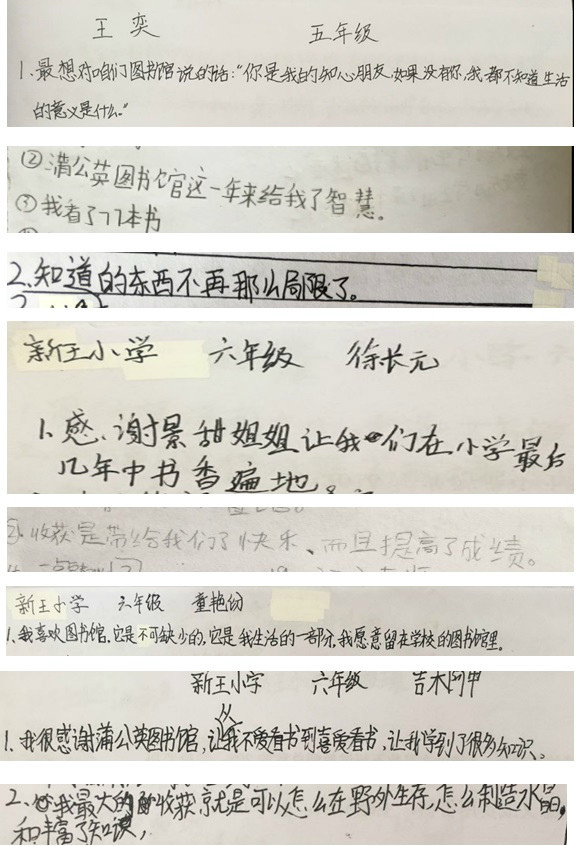 王奕 五年级
1.最想对咱们图书馆说的话:“你是我的知心朋友,如果没有你,我都不知道生活
的意义是什么。”
②蒲公英图书馆这一年来给我了智慧。
③我看了77本书
2.知道的东西不再那么局限了。
新王小学 六年级 徐长元
1.感谢景甜姐姐让我们在小学最后
几年中书香遍地。
②.收获是带给我们了快乐、而且提高了成绩。
新王小学 六年级 董艳
1.我喜欢图书馆.它是不可缺少的,它是我生活的一部分,我愿意留在学校的图书馆里。
新王小学 六年级
1.我很感谢蒲公英图书馆,让我从不爱看书到喜爱看书,让我学到了很多知识。
2.我最大的收获就是可以怎么在野外生存,怎么制造水晶,
和丰富了知识,